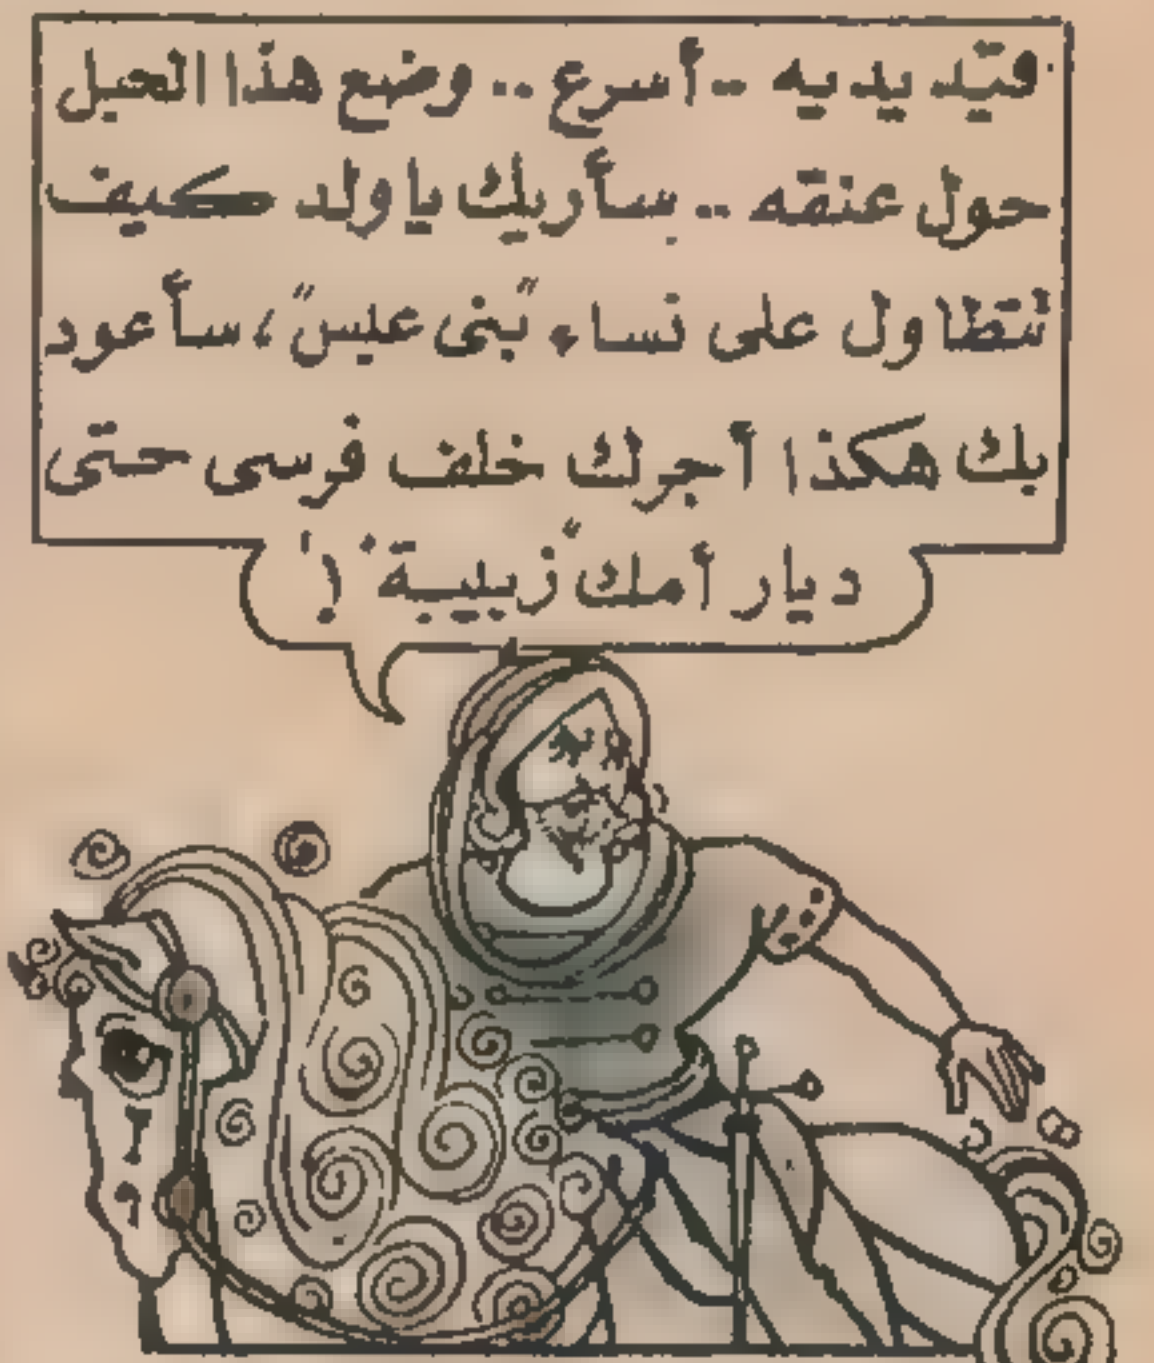 قيّد يديه .. أسرع .. وضع هذا الحبل
حول عنقه .. سأريك يا ولد كيف
تتطاول على نساء "بنى عبس"، سأعود
بك هكذا أجرك خلف فرسى حتى
ديار أمك "زبيبة" !